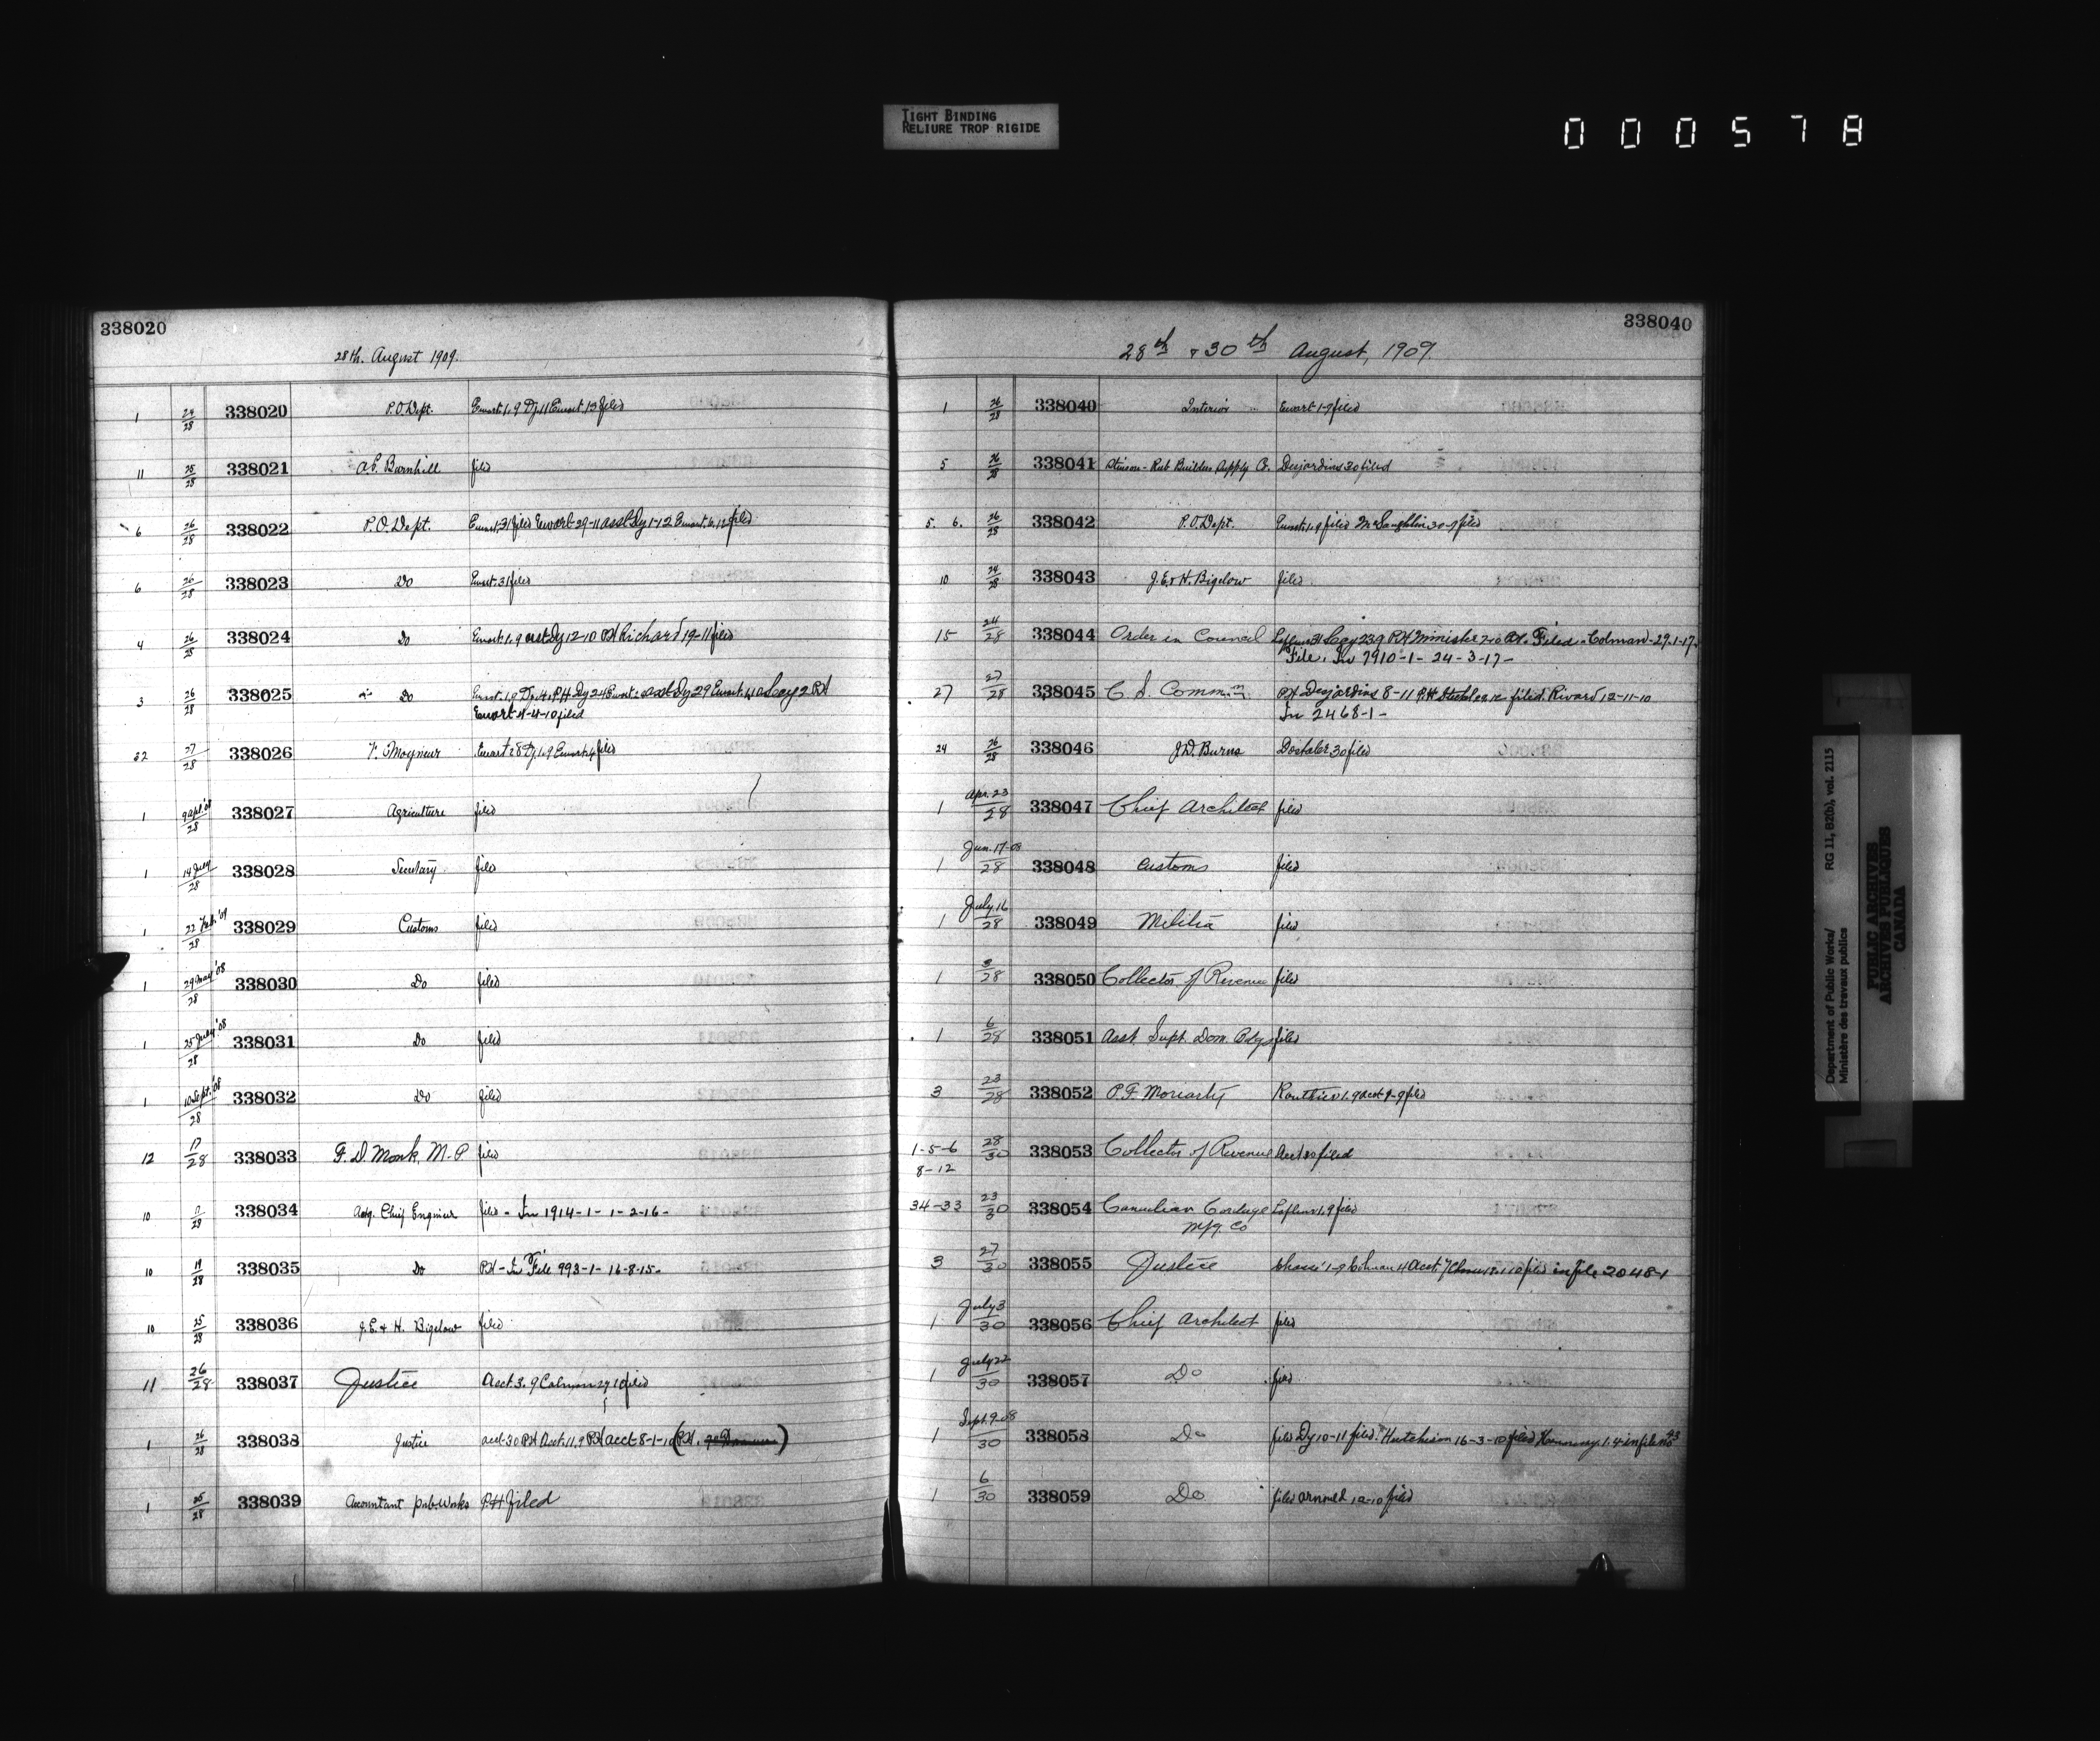 TIGHT BINDING
RELIURE TROP RIGIDE
000578
338020
28th. August 1909.
1 24/28 338020 P.O. Dept. Ewart 1.9 Dy. 11 Ewart 13 filed
11 25/28 338021 filed
6 26/28 338022 P.O. Dept. Ewart 31 filed Ewart 29-11 asst Dy 1-12 Ewart filed
6 26/28 338023 Do Ewart 31 filed
4 26/28 338024 Do Ewart 1.9 asst Dy 12-10 PH Richard 19-11 filed
3 26/28 338025 Do Ewart 1.9 PH Dy 24 Ewart asst Dy 29 Ewart PH
Ewart filed
22 27/28 338026 Ewart 28 Dy. 1.9 Ewart filed
1 9 Apl. /28 338027 Agriculture filed
1 /28 338028 Secretary filed
1 22 Feb. '09/28 338029 Customs filed
1 29 May '08/28 338030 Do filed
1 '08/28 338031 Do filed
1 10 Sept. '08/28 338032 Do filed
12 17/28 338033 F. D. Monk, M.P filed
10 /28 338034 Chief Engineer filed - In 1914-1-1-2-16-
10 19/28 338035 Do PH - In File 993-1- 16-8-15-
10 25/28 338036 J.E. & H. Bigelow filed
11 26/28 338037 Justice Acct. 3.9 filed
1 26/28 338038 Justice acct 30 PH Acct. 11.9 PH acct 8-1-10 (PH.
1 25/28 338039 Accountant Pub. Works P.H filed
338040
28th & 30th August, 1909.
1 26/28 338040 Interior Ewart 1-9 filed
5 26/28 338041 Builders Supply Co. Desjardins 30 filed
5. 6. 26/28 338042 P.O. Dept. Ewart 1.9 filed McLaughlin 30-9 filed
10 24/28 338043 J.E. & H. Bigelow filed
15 24/28 338044 Order in Council PH Minister PH. Filed - Colman - 29.1-17.
File. In 7910-1- 24-3-17-
27 27/28 338045 C. S. Commn PH Desjardins 8-11 P.H filed. Rivard 12-11-10
In 2468-1-
24 26/28 338046 J.D. Burns 30 filed
1 Apr. 23/28 338047 Chief Architect filed
1 Jun. 17-08/28 338048 Customs filed
1 July 16/28 338049 Militia filed
1 3/28 338050 Collector of Revenue filed
1 6/28 338051 Asst Supt. Dom. Bdgs filed
3 23/28 338052 P.F. Moriarty 1.9 acct 9-9 filed
1-5-6
8-12 28/30 338053 Collector of Revenue Acct 30 filed
34-33 23/30 338054 Canadian Cordage
Mfg. Co Lafleur 1.9 filed
3 27/30 338055 Justice 1-9 Colman 4 Acct. 7 filed in file 2048-1
1 July 3/30 338056 Chief Architect filed
1 July 22/30 338057 Do filed
1 Sept. 9-08/30 338058 Do filed Dy 10-11 filed. Hutchison 16-3-10 filed in file
1 6/30 338059 Do filed Arnould 12-10 filed
Department of Public Works/
Ministère des travaux publics
RG 11, B2(b), vol. 2115
PUBLIC ARCHIVES
ARCHIVES PUBLIQUES
CANADA